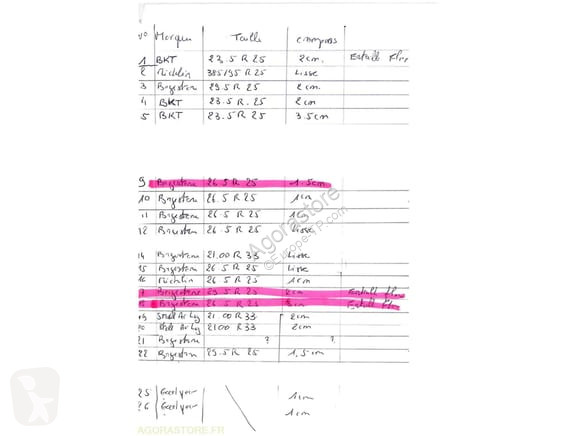 N° Marque Taille crampons
1 BKT 23.5 R 25 2cm. Entaille Flanc
2 Michelin 385/95 R 25 Lisse
3 Brigestone 29.5 R 25 2cm
4 BKT 23.5 R. 25 2cm
5 BKT 23.5 R. 25 3.5cm
9 Brigestone 26.5 R 25 1.5cm
10 Brigestone 26.5 R 25 1cm
11 Brigestone 26.5 R 25 1cm
12 Brigestone 26.5 R 25 Lisse
14 Brigestone 21.00 R 33 Lisse
15 Brigestone 26.5 R 25 Lisse
16 Michelin 26.5 R 25 1cm
Brigestone 25 2cm Entaille
Brigestone 26.5 R 25 Entaille
19 21.00 R 33 2cm
20 2100 R 33 2cm
21 Brigestone ? ?
22 Brigestone 29.5 R 25 1,5cm
25 1cm
26 1cm
Agorastore
©Europe-TP.com
AGORASTORE.FR